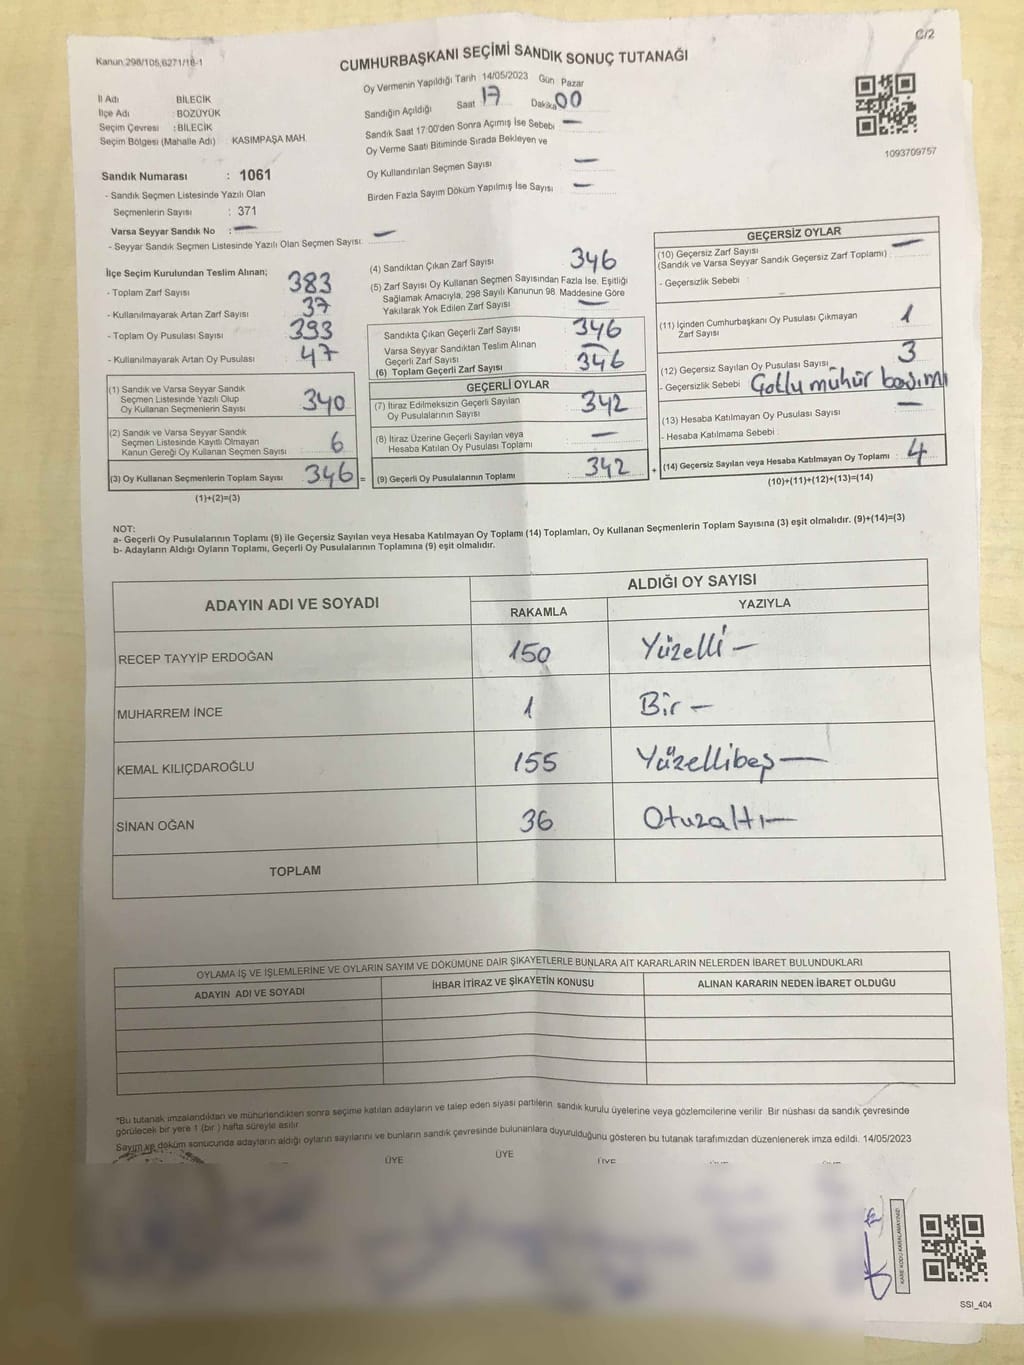 C/2
Kanun 298/105,6271/18-1
CUMHURBAŞKANI SEÇİMİ SANDIK SONUÇ TUTANAĞI
İl Adı BİLECİK
İlçe Adı BOZÜYÜK
Seçim Çevresi : BİLECİK
Seçim Bölgesi (Mahalle Adı) : KASIMPAŞA MAH.
Oy Vermenin Yapıldığı Tarih 14/05/2023 Gün Pazar
Sandığın Açıldığı Saat 17 Dakika 00
Sandık Saat 17:00'den Sonra Açımış İse Sebebi —
Oy Verme Saati Bitiminde Sırada Bekleyen ve
Oy Kullandırılan Seçmen Sayısı —
Birden Fazla Sayım Döküm Yapılmış İse Sayısı —
1093709757
Sandık Numarası : 1061
- Sandık Seçmen Listesinde Yazılı Olan
Seçmenlerin Sayısı : 371
Varsa Seyyar Sandık No : —
- Seyyar Sandık Seçmen Listesinde Yazılı Olan Seçmen Sayısı: —
İlçe Seçim Kurulundan Teslim Alınan;
- Toplam Zarf Sayısı 383
- Kullanılmayarak Artan Zarf Sayısı 37
- Toplam Oy Pusulası Sayısı 393
- Kullanılmayarak Artan Oy Pusulası 47
(1) Sandık ve Varsa Seyyar Sandık
Seçmen Listesinde Yazılı Olup
Oy Kullanan Seçmenlerin Sayısı 340
(2) Sandık ve Varsa Seyyar Sandık
Seçmen Listesinde Kayıtlı Olmayan
Kanun Gereği Oy Kullanan Seçmen Sayısı 6
(3) Oy Kullanan Seçmenlerin Toplam Sayısı : 346 =
(1)+(2)=(3)
(4) Sandıktan Çıkan Zarf Sayısı 346
(5) Zarf Sayısı Oy Kullanan Seçmen Sayısından Fazla İse, Eşitliği
Sağlamak Amacıyla, 298 Sayılı Kanunun 98. Maddesine Göre
Yakılarak Yok Edilen Zarf Sayısı —
Sandıkta Çıkan Geçerli Zarf Sayısı 346
Varsa Seyyar Sandıktan Teslim Alınan
Geçerli Zarf Sayısı —
(6) Toplam Geçerli Zarf Sayısı 346
GEÇERLİ OYLAR
(7) İtiraz Edilmeksizin Geçerli Sayılan
Oy Pusulalarının Sayısı 342
(8) İtiraz Üzerine Geçerli Sayılan veya
Hesaba Katılan Oy Pusulası Toplamı —
(9) Geçerli Oy Pusulalarının Toplamı 342 +
GEÇERSİZ OYLAR
(10) Geçersiz Zarf Sayısı
(Sandık ve Varsa Seyyar Sandık Geçersiz Zarf Toplamı) : —
- Geçersizlik Sebebi
(11) İçinden Cumhurbaşkanı Oy Pusulası Çıkmayan
Zarf Sayısı 1
(12) Geçersiz Sayılan Oy Pusulası Sayısı 3
- Geçersizlik Sebebi mühür basımı
(13) Hesaba Katılmayan Oy Pusulası Sayısı —
- Hesaba Katılmama Sebebi :
(14) Geçersiz Sayılan veya Hesaba Katılmayan Oy Toplamı : 4
(10)+(11)+(12)+(13)=(14)
NOT:
a- Geçerli Oy Pusulalarının Toplamı (9) ile Geçersiz Sayılan veya Hesaba Katılmayan Oy Toplamı (14) Toplamları, Oy Kullanan Seçmenlerin Toplam Sayısına (3) eşit olmalıdır. (9)+(14)=(3)
b- Adayların Aldığı Oyların Toplamı, Geçerli Oy Pusulalarının Toplamına (9) eşit olmalıdır.
ADAYIN ADI VE SOYADI
ALDIĞI OY SAYISI
RAKAMLA YAZIYLA
RECEP TAYYİP ERDOĞAN 150 Yüzelli —
MUHARREM İNCE 1 Bir —
KEMAL KILIÇDAROĞLU 155 Yüzellibeş —
SİNAN OĞAN 36 Otuzaltı —
TOPLAM
OYLAMA İŞ VE İŞLEMLERİNE VE OYLARIN SAYIM VE DÖKÜMÜNE DAİR ŞİKAYETLERLE BUNLARA AİT KARARLARIN NELERDEN İBARET BULUNDUKLARI
ADAYIN ADI VE SOYADI İHBAR İTİRAZ VE ŞİKAYETİN KONUSU ALINAN KARARIN NEDEN İBARET OLDUĞU
*Bu tutanak imzalandıktan ve mühürlendikten sonra seçime katılan adayların ve talep eden siyasi partilerin, sandık kurulu üyelerine veya gözlemcilerine verilir. Bir nüshası da sandık çevresinde
görülecek bir yere 1 (bir ) hafta süreyle asılır.
Sayım ve döküm sonucunda adayların aldığı oyların sayılarını ve bunların sandık çevresinde bulunanlara duyurulduğunu gösteren bu tutanak tarafımızdan düzenlenerek imza edildi. 14/05/2023
ÜYE ÜYE ÜYE
KARE KODU KARALAMAYINIZ!
SSI_404